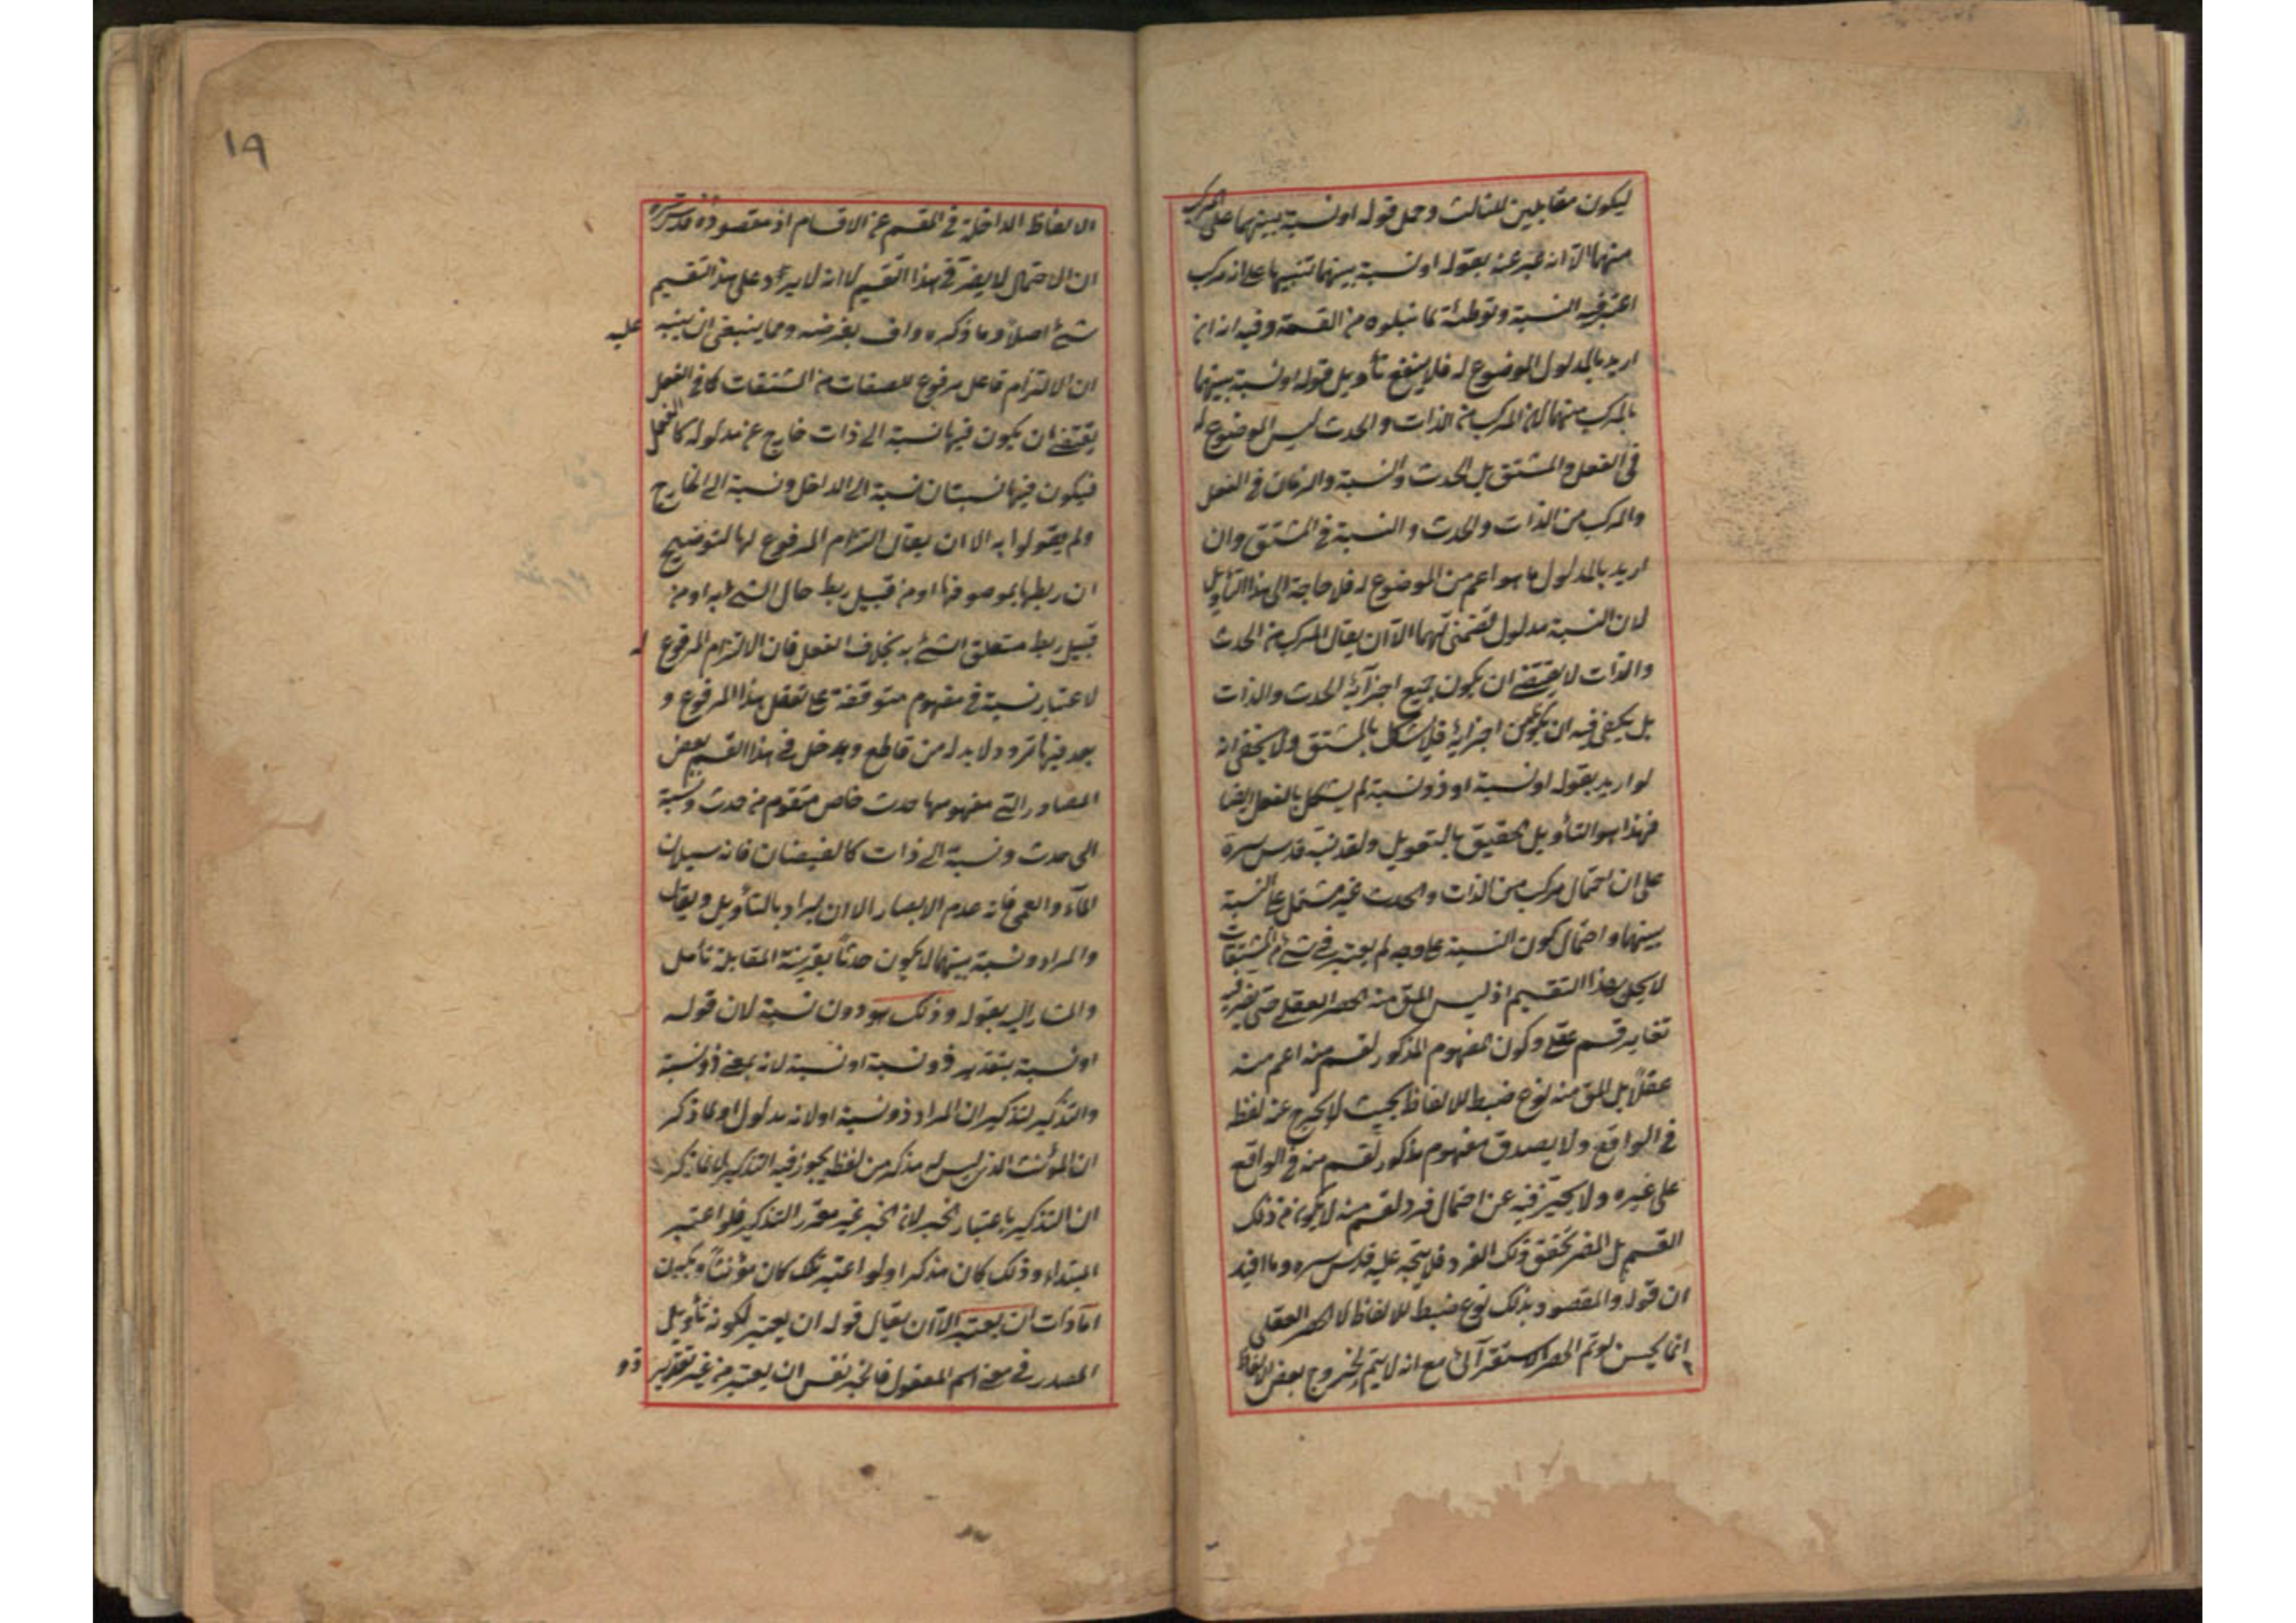 ليكون مقابلين للثالث وحمل قوله او نسبة بينهما على المركب
منهما الا انه عبر عنه بقوله او نسبة بينهما تنبيها على انه مركب
اعتبر فيه النسبة وتوطئة لما يتلوه من القسمة وفيه انه ان
اريد بالمدلول الموضوع له فلا ينفع تأويل قوله او نسبة بينهما
بالمركب منهما لان المركب من الذات والحدث ليس الموضوع له
في الفعل والمشتق بل الحدث والنسبة والزمان في الفعل
والمركب من الذات والحدث والنسبة في المشتق وان
اريد بالمدلول ما هو اعم من الموضوع له فلا حاجة الى هذا التأويل
لان النسبة مدلول تضمني لهما الا ان يقال المركب من الحدث
والذات لا يقتضي ان يكون جميع اجزآئه الحدث والذات
بل يكفي فيه ان يكون من اجزائه فلا يشكل بالمشتق ولا يخفى انه
لو اريد بقوله او نسبة او ذو نسبة لم يشكل بالفعل ايضا
فهذا هو التأويل الحقيق بالتعويل ولقد نبه قدس سره
على ان احتمال مركب من الذات والحدث غير مشتمل على النسبة
بينهما واحتمال كون النسبة على وجه لم يعتبر في شئ من المشتقات
لا يخل بهذا التقسيم اذ ليس المق منه الحصر العقلي حتى يضر فيه
تغاير قسم عقلي وكون المفهوم المذكور لقسم منه اعم منه
عقلاً بل المق منه نوع ضبط للالفاظ بحيث لا يخرج عنه لفظ
في الواقع ولا يصدق مفهوم مذكور لقسم منه في الواقع
على غيره ولا يحترز فيه عن احتمال فرد لقسم منه لا يكون من ذلك
القسم بل المضر تحقق ذلك الفرد فلا يتجه عليه قدس سره وما افيد
ان قوله والمقصود بذلك نوع ضبط للالفاظ لا الحصر العقلي
انما يحسن لو تم الحصر الاستقرآئي مع انه لا يتم لخروج بعض الالفاظ
١٩
الالفاظ الداخلة في المقسم عن الاقسام اذ مقصوده قدس سره
ان الاحتمال لا يضر في هذا التقسيم لا انه لا يرد على هذا التقسيم
شئ اصلاً وما ذكره واف بغرضه ومما ينبغي ان ينبه عليه
ان الالتزام فاعل مرفوع للصفات من المشتقات كما في الفعل
يقتضي ان يكون فيها نسبة الى ذات خارج عن مدلوله كالفعل
فيكون فيها نسبتان نسبة الى الداخل ونسبة الى الخارج
ولم يقولوا به الا ان يقال التزام المرفوع لها لتوضيح
ان ربطها بموصوفها او من قبيل ربط حال الشئ به او من
قبيل ربط متعلق الشئ به بخلاف الفعل فان الالتزام المرفوع له
لاعتبار نسبة في مفهوم متوقفة على تعقل هذا المرفوع و
بعد فيها تردد ولا بد له من قاطع ويدخل في هذا القسم بعض
المصادر التي مفهومها حدث خاص متقوم من حدث ونسبة
الى حدث ونسبة الى ذات كالفيضان فانه سيلان
المآء والعمى فانه عدم الابصار الا ان يراد بالتأويل ويقال
والمراد ونسبة بينهما لا يكون حدثاً بقرينة المقابلة تأمل
والمشار اليه بقوله وذلك هو دون نسبة لان قوله
او نسبة بتقدير ذو نسبة او نسبة لانه بمعنى ذو نسبة
والتذكير لتذكير ان المراد ذو نسبة او لانه مدلول او لما ذكر
ان المؤنث الذي ليس له مذكر من لفظه يجوز فيه التذكير لا لما ذكر
ان التذكير باعتبار الخبر لان الخبر غير مقرر التذكير فلو اعتبر
المبتداء وذلك كان مذكرا ولو اعتبر تلك كان مؤنثاً ويكون
اما ذات ان يعتبر الا ان يقال قوله ان يعتبر لكونه تأويل
المصدر في معنى اسم المفعول فالخبر نفس ان يعتبر من غير تقدير
ذو